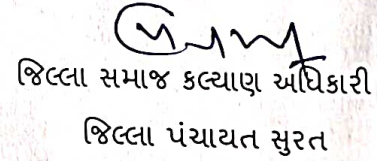 જિલ્લા સમાજ કલ્યાણ અધિકારી
જિલ્લા પંચાયત સુરત